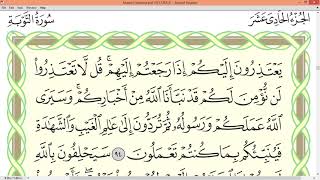 الجزء الحادي عشر سورة التوبة
يَعْتَذِرُونَ إِلَيْكُمْ إِذَا رَجَعْتُمْ إِلَيْهِمْ ۚ قُل لَّا تَعْتَذِرُوا
لَن نُّؤْمِنَ لَكُمْ قَدْ نَبَّأَنَا اللَّهُ مِنْ أَخْبَارِكُمْ ۚ وَسَيَرَى
اللَّهُ عَمَلَكُمْ وَرَسُولُهُ ثُمَّ تُرَدُّونَ إِلَىٰ عَالِمِ الْغَيْبِ وَالشَّهَادَةِ
فَيُنَبِّئُكُم بِمَا كُنتُمْ تَعْمَلُونَ ٩٤ سَيَحْلِفُونَ بِاللَّهِ